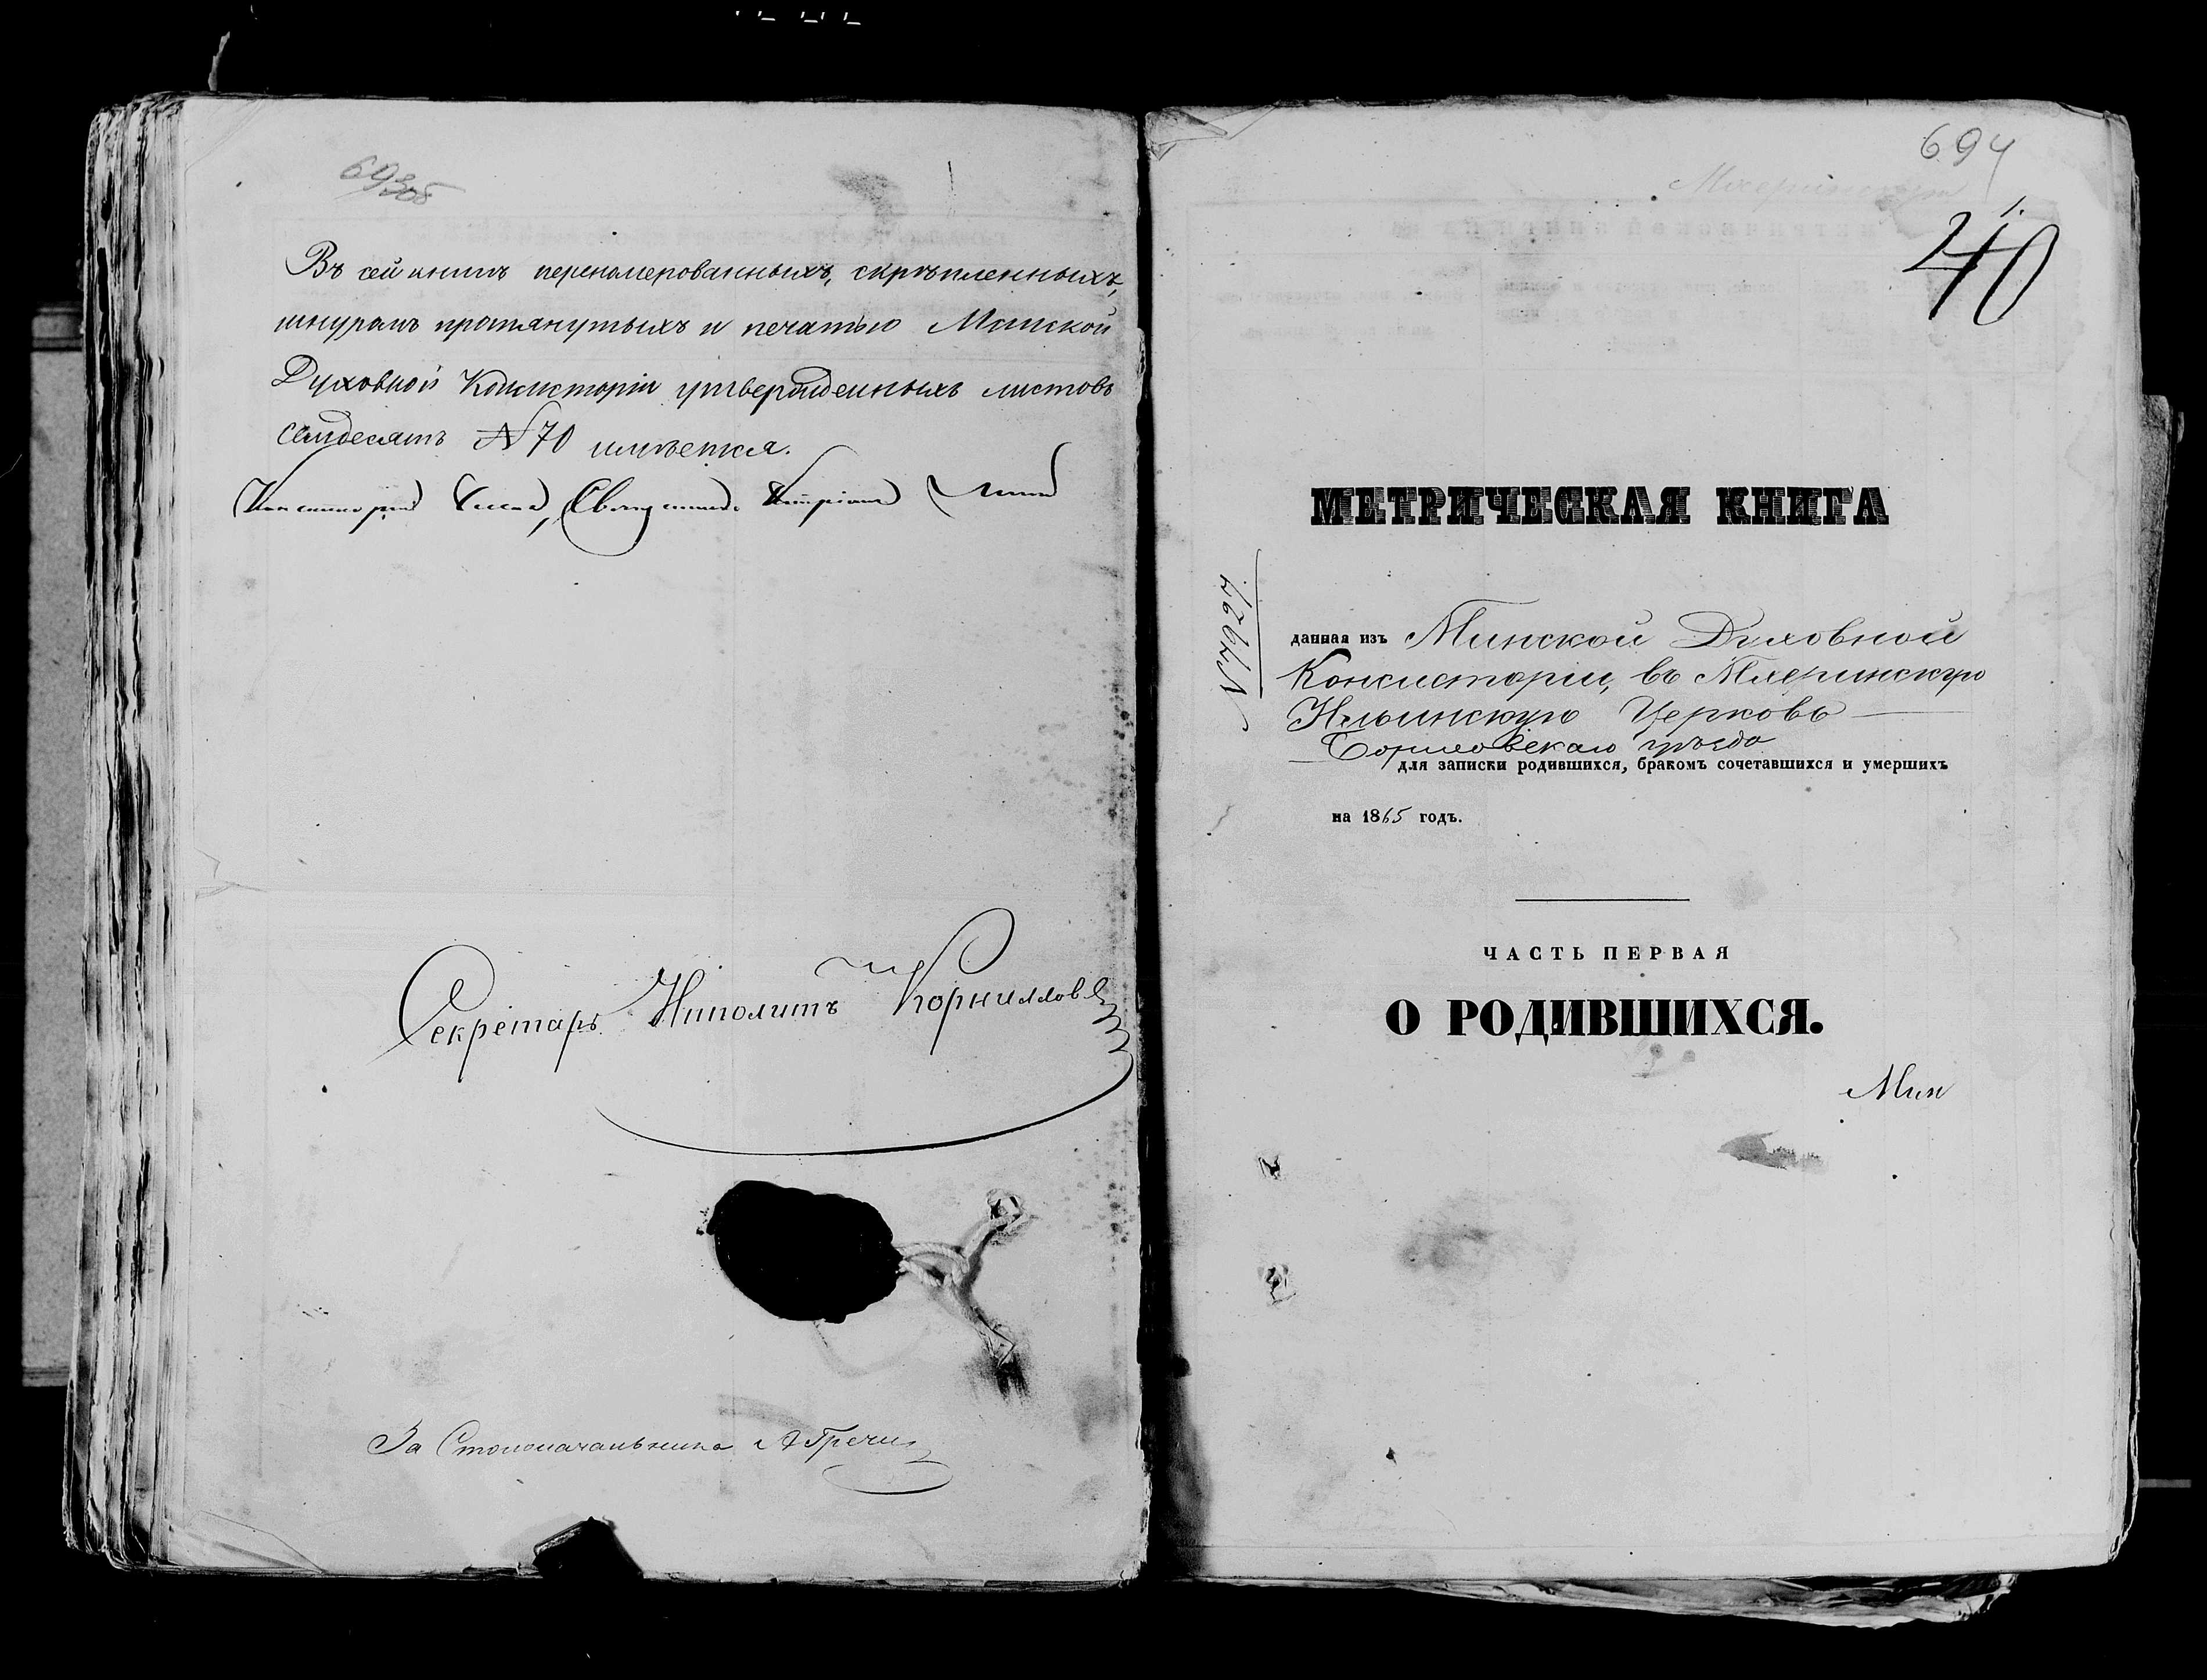 693об
Въ сей книгѣ переномерованныхъ, скрѣпленныхъ,
шнуромъ протянутыхъ и печатью Минской
Духовной Консисторіи утвержденныхъ листовъ
семдесятъ N 70 имѣется.
Консисторіи Членъ, Священникъ
Секретарь Иполитъ Корниллов
За Столоначальника А Гречи
694
Мхеринскую
1.
40
МЕТРИЧЕСКАЯ КНИГА
данная изъ Минской Духовной
Консисторіи, въ Мхеринскую
Ильинскую Церковь
Борисовскаго уѣзда
для записки родившихся, бракомъ сочетавшихся и умершихъ
на 1865 годъ.
ЧАСТЬ ПЕРВАЯ
О РОДИВШИХСЯ.
Мин